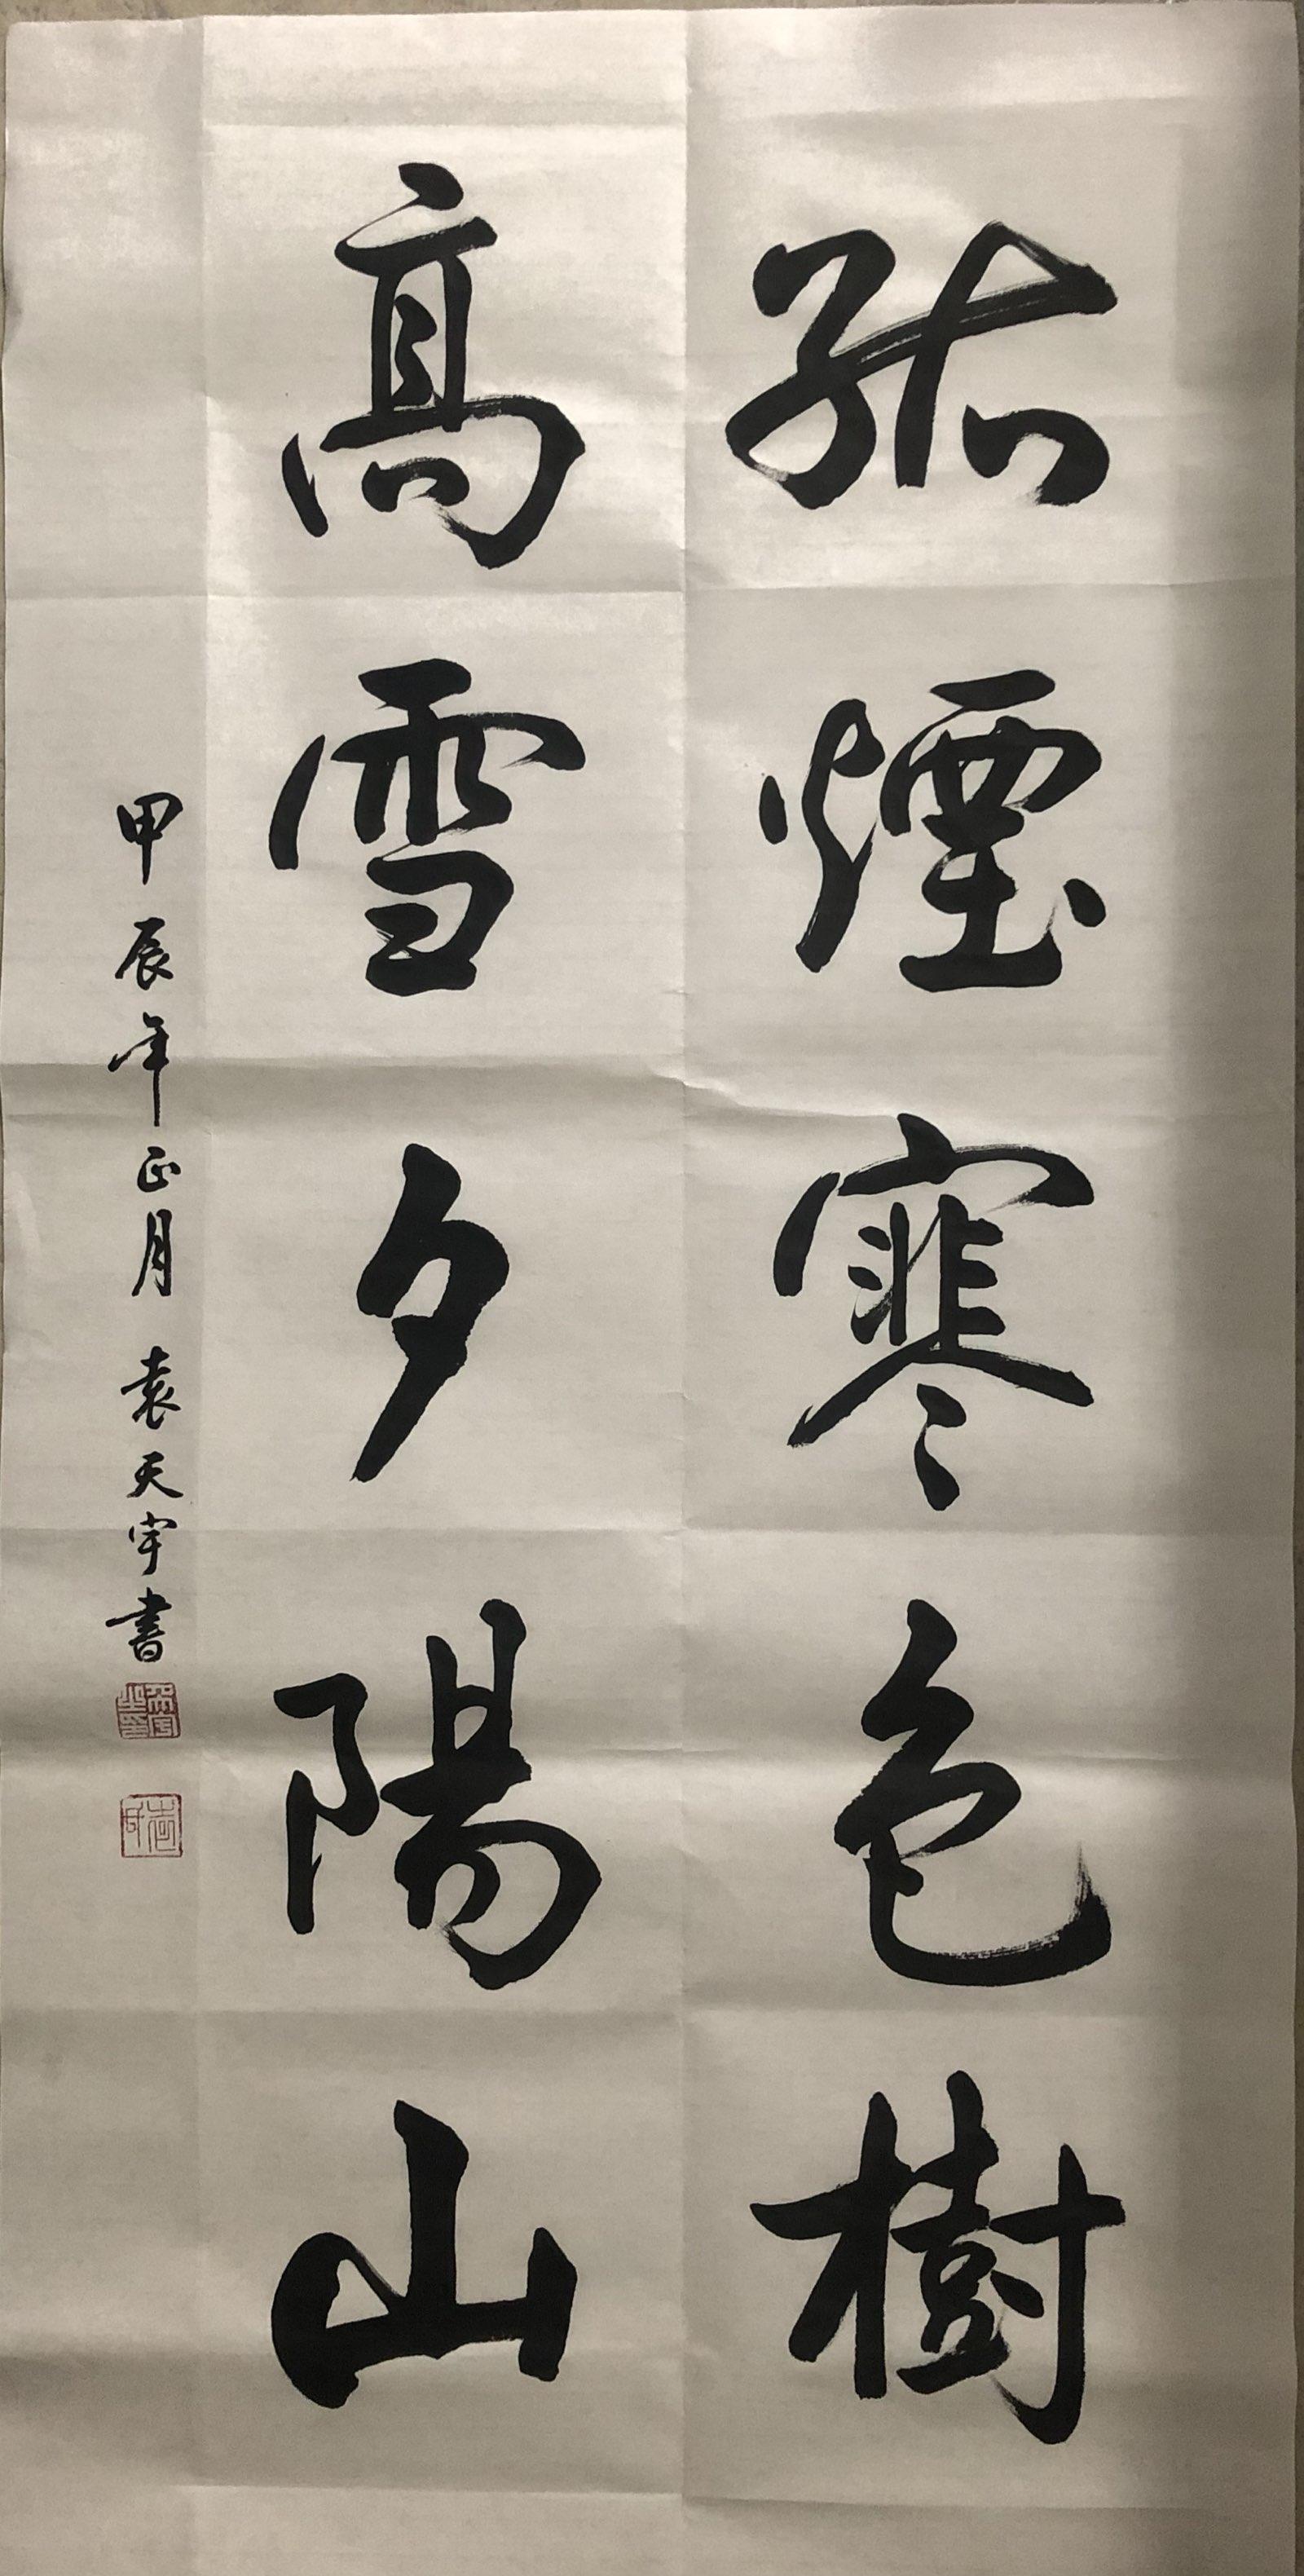 孤煙寒色樹
高雪夕陽山
甲辰年正月 袁天宇書
天宇之印